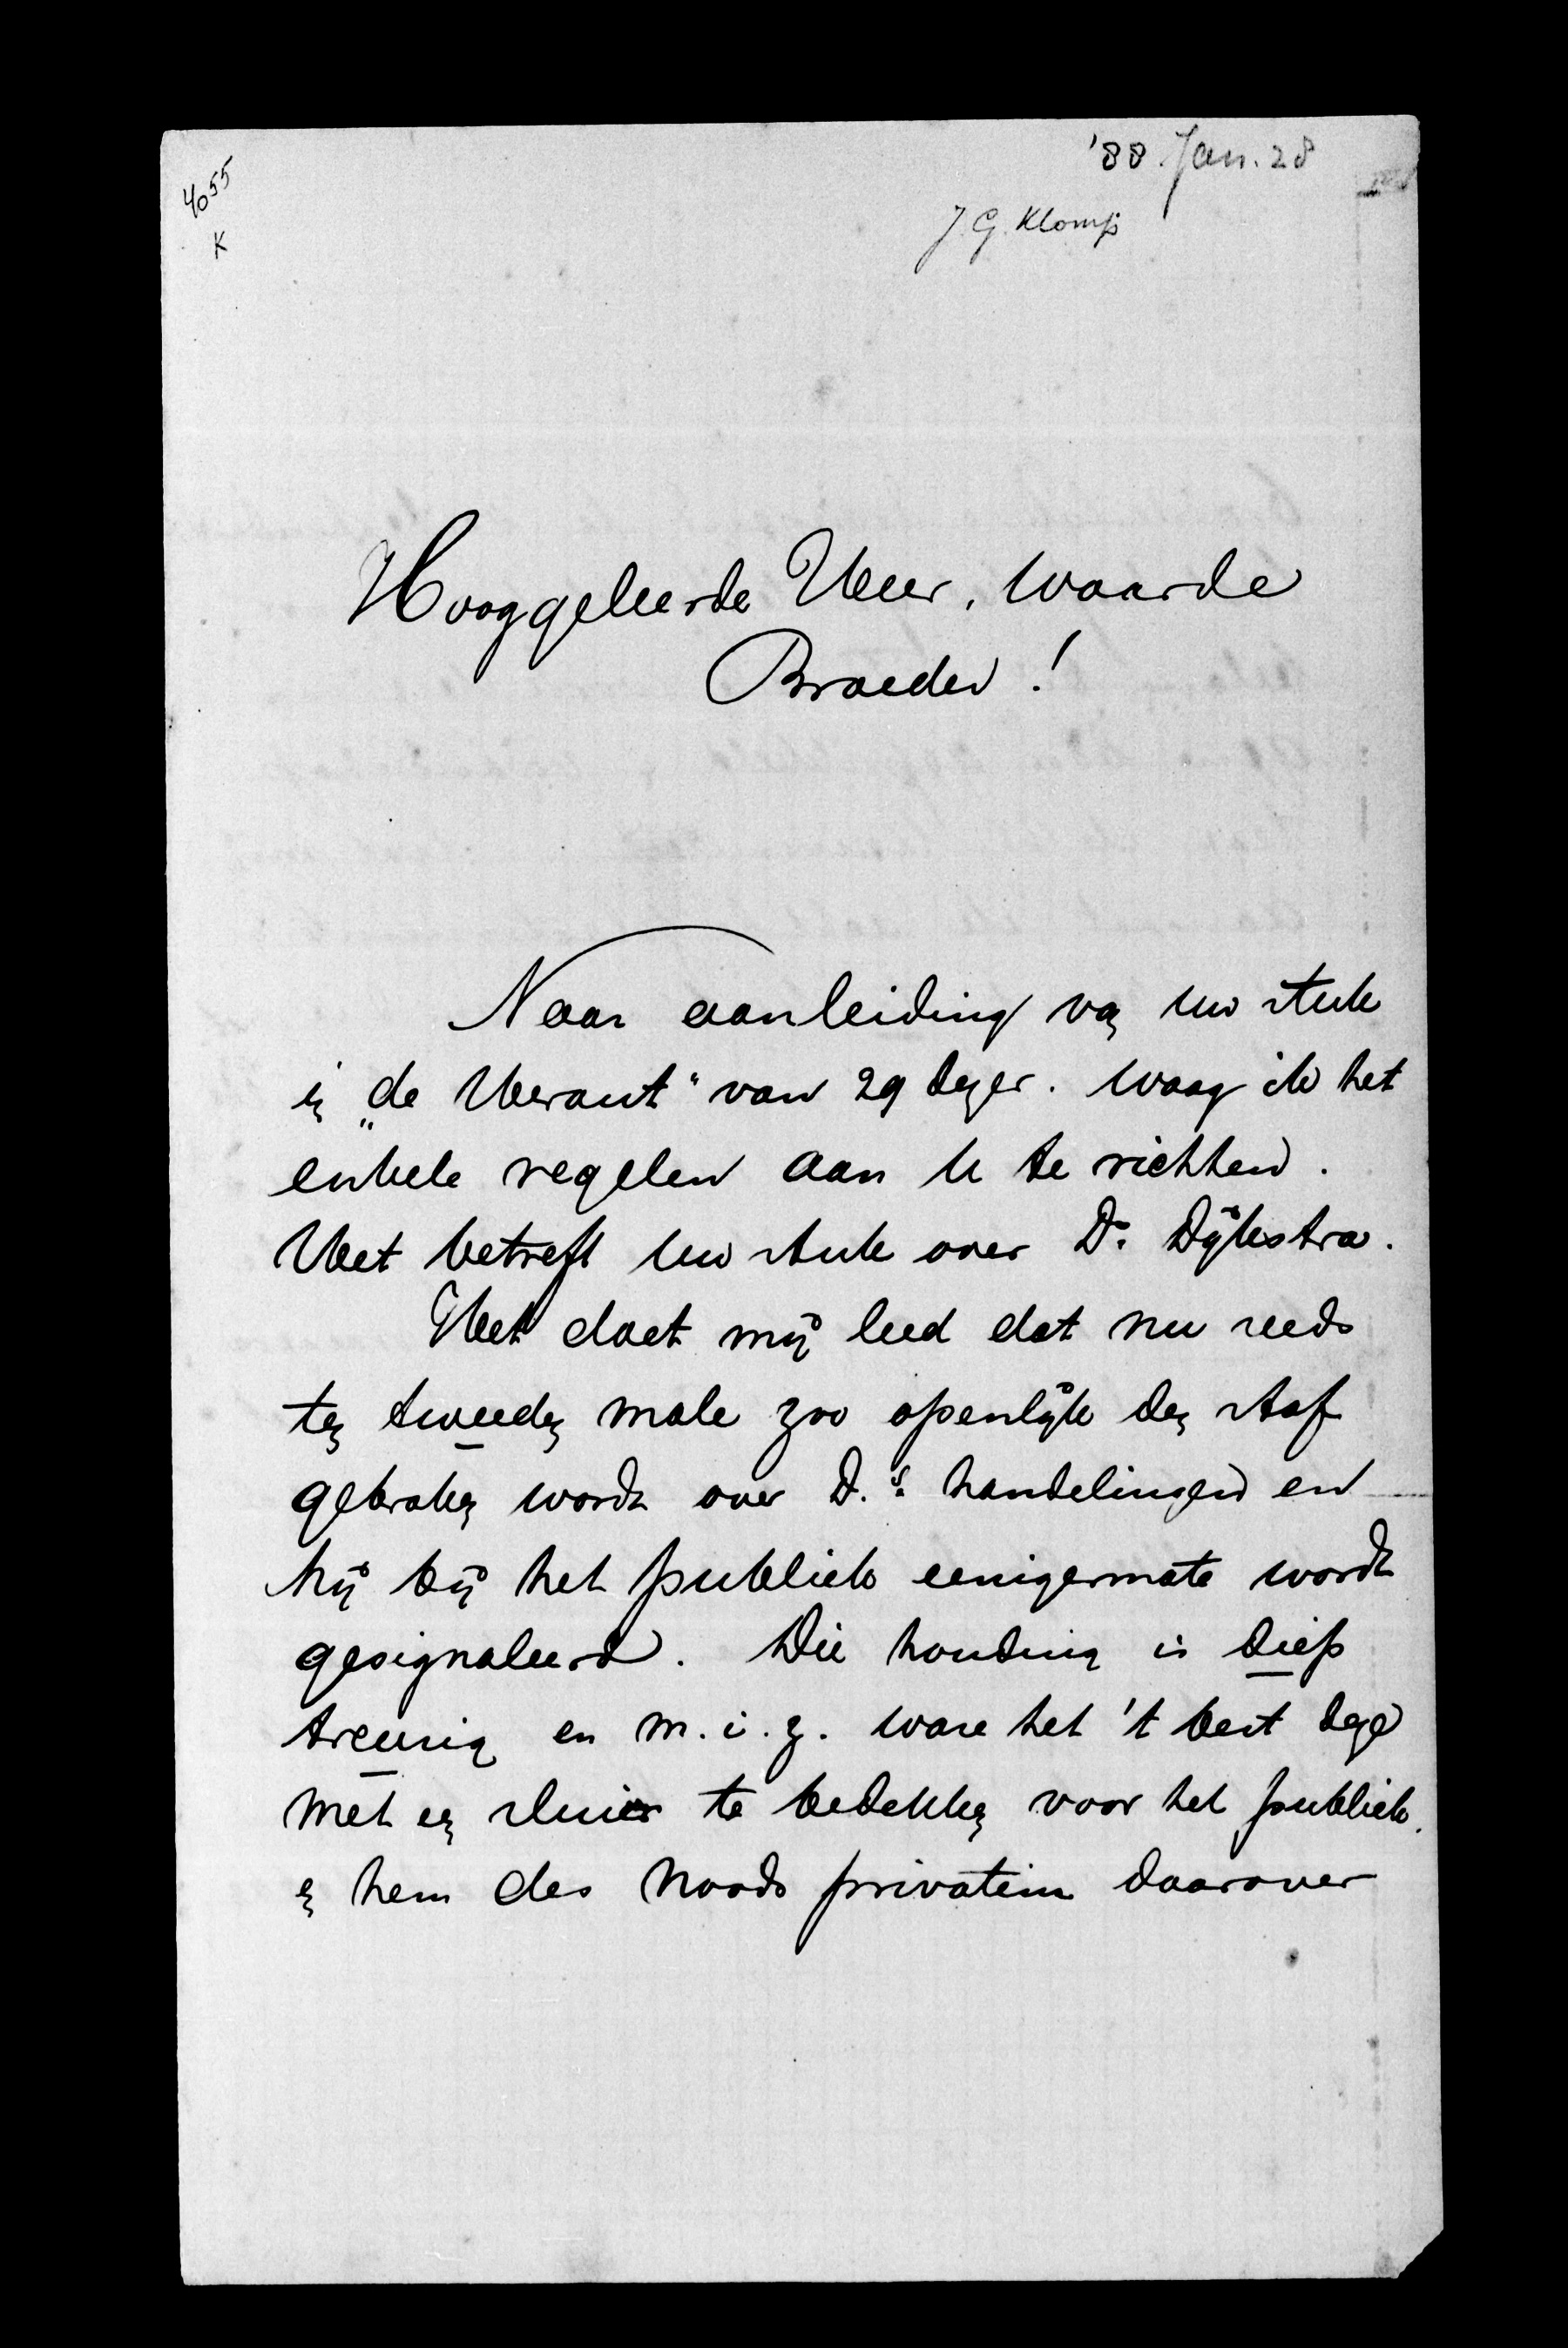 4055
K
'88. Jan. 28
J. G. Klomp
Hooggeleerde Heer, Waarde
Broeder!
Naar aanleiding van uw stuk
in „de Heraut" van 29 dezer. waag ik het
enkele regelen aan U te richten.
Het betreft Uw stuk over Ds. Dijkstra.
Het doet mij leed dat nu reeds
ten tweeden male zoo openlijk den staf
gebroken wordt over D.s handelingen en
hij bij het publiek eenigermate wordt
gesignaleerd. Die houding is diep
treurig en m. i. z. ware het 't best deze
met een sluier te bedekken voor het publiek.
en hem des noods privatim daarover